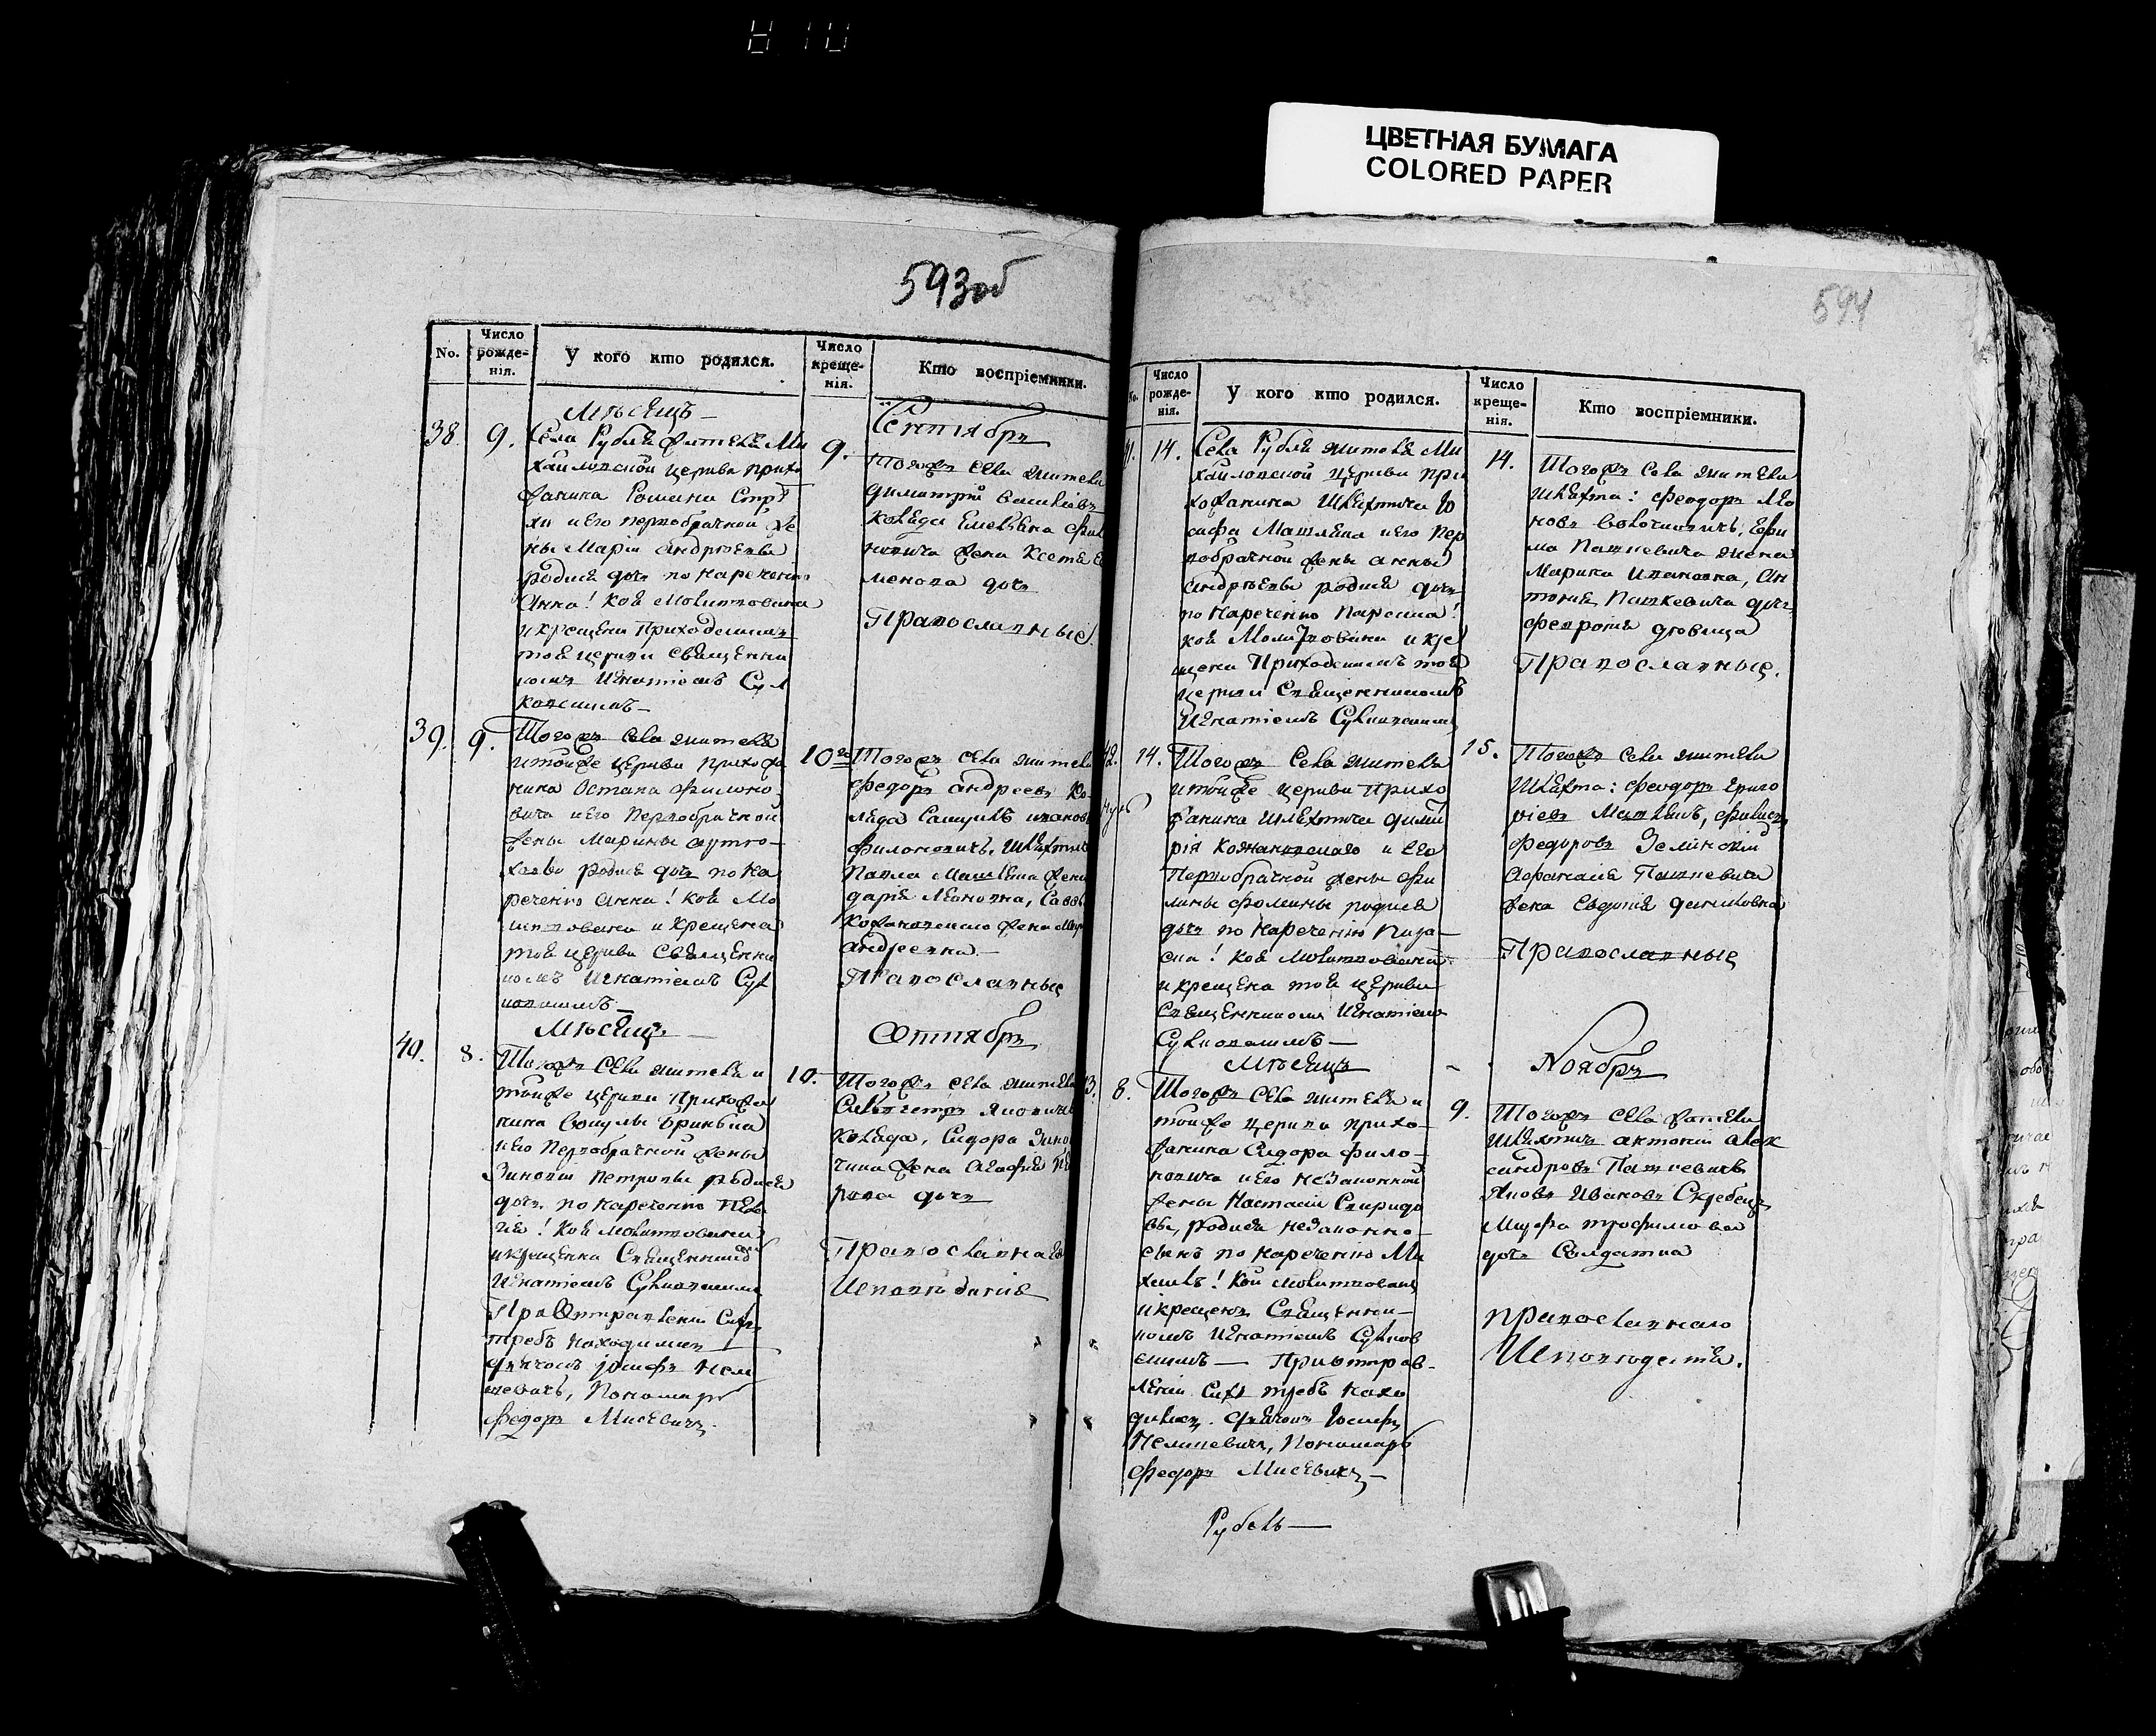 ЦВЕТНАЯ БУМАГА
COLORED PAPER
593об
No.
Число рожде-нія.
У кого кто родился.
Число креще-нія.
Кто воспріемники.
Мѣсяцъ
Сентябрь
38
9.
Села Рубля жителя Ми
хайловской церкви прихо
жанина Романа
хи и его первобрачной же
ны Маріи Андреевы
родися дочь по нареченію
Анна! коя молитвована
и крещена Приходскимъ
тоя церкви Священни
комъ Игнатіемъ Сул
ковскимъ
9.
Тогожъ села жители
Димитрій Васильевъ
Коляда Емельяна Фило
новича жена Ксенія
менова дочь
Православные
39.
9.
Тогожъ села жителя
и тойже церкви прихожа
нина Остапа Филоно
вича и его Первобрачной
жены Марины
родися дочь по на
реченію Анна! коя мо
литвована и крещена
тоя церкви Священни
комъ Игнатіемъ Сул
ковскимъ
10го
Тогожъ села жители
Федоръ Андреевъ Ко
ляда Самуилъ Иванов
Филоновичъ, Шляхтича
Павла жена
Дарія Леонова,
жена
Андреевна
Православные
Мѣсяцъ
Октябрь
40.
8.
Тогожъ села жителя и
тойже церкви Прихожа
нина
и его Первобрачной жены
Зиновіи Петровы родися
дочь по нареченію Пела
гія! коя молитвована
и крещена Священникомъ
Игнатіемъ Сулковскимъ
При отправленіи сихъ
требъ находились
дьячокъ Іосифъ
Пономарь
Федоръ Мисевичъ.
10.
Тогожъ села жители
Коляда, Сидора
жена Агафія
дочь
Православнаго
Исповѣданія
594
No.
Число рожде-нія.
У кого кто родился.
Число креще-нія.
Кто воспріемники.
41.
14.
Села Рубля жителя Ми
хайловской церкви при
хожанина Шляхтича Іо
сифа и его пер
вобрачной жены Анны
Андреевы родися дочь
по нареченію
коя молитвована и кре
щена Приходскимъ тоя
церкви Священникомъ
Игнатіемъ Сулковским
14.
Тогожъ села жители
шляхта: Феодоръ Лео
новъ
ма Пашкевича жена
Марина Ивановна, Ан
тонія Пашкевича дочь
Февронія девица
Православные.
42.
14.
Тогожъ села жителя
и тойже церкви прихо
жанина шляхтича Димит
рія и его
Первобрачной жены
Фомины родися
дочь по нареченію
коя молитвована
и крещена тоя церкви
Священникомъ Игнатіемъ
Сулковскимъ
15.
Тогожъ села жители
Шляхта: Феодоръ Григо
ріевъ
Федоровъ Зелинскій
Афанасія Пашкевича
жена Евдокія Даниловна
Православные
Мѣсяцъ
Ноябрь
43.
8.
Тогожъ села жителя и
тойже церкви прихо
жанина Сидора Фило
новича и его незаконной
жены Настасіи Спиридо
вы, родися незаконно
сынъ по нареченію Ми
хаилъ! кой молитвованъ
и крещенъ Священни
комъ Игнатіемъ Сулков
скимъ — При отправ
леніи сихъ требъ нахо
дились дьячокъ Іосифъ
Пономарь
Федоръ Мисевичъ
9.
Тогожъ села жители
шляхтичъ Антоній Алек
сандровъ Пашкевичъ
Яковъ Ивановъ
Трофимова
дочь Солдатка
православнаго
Исповѣданія.
Рубель